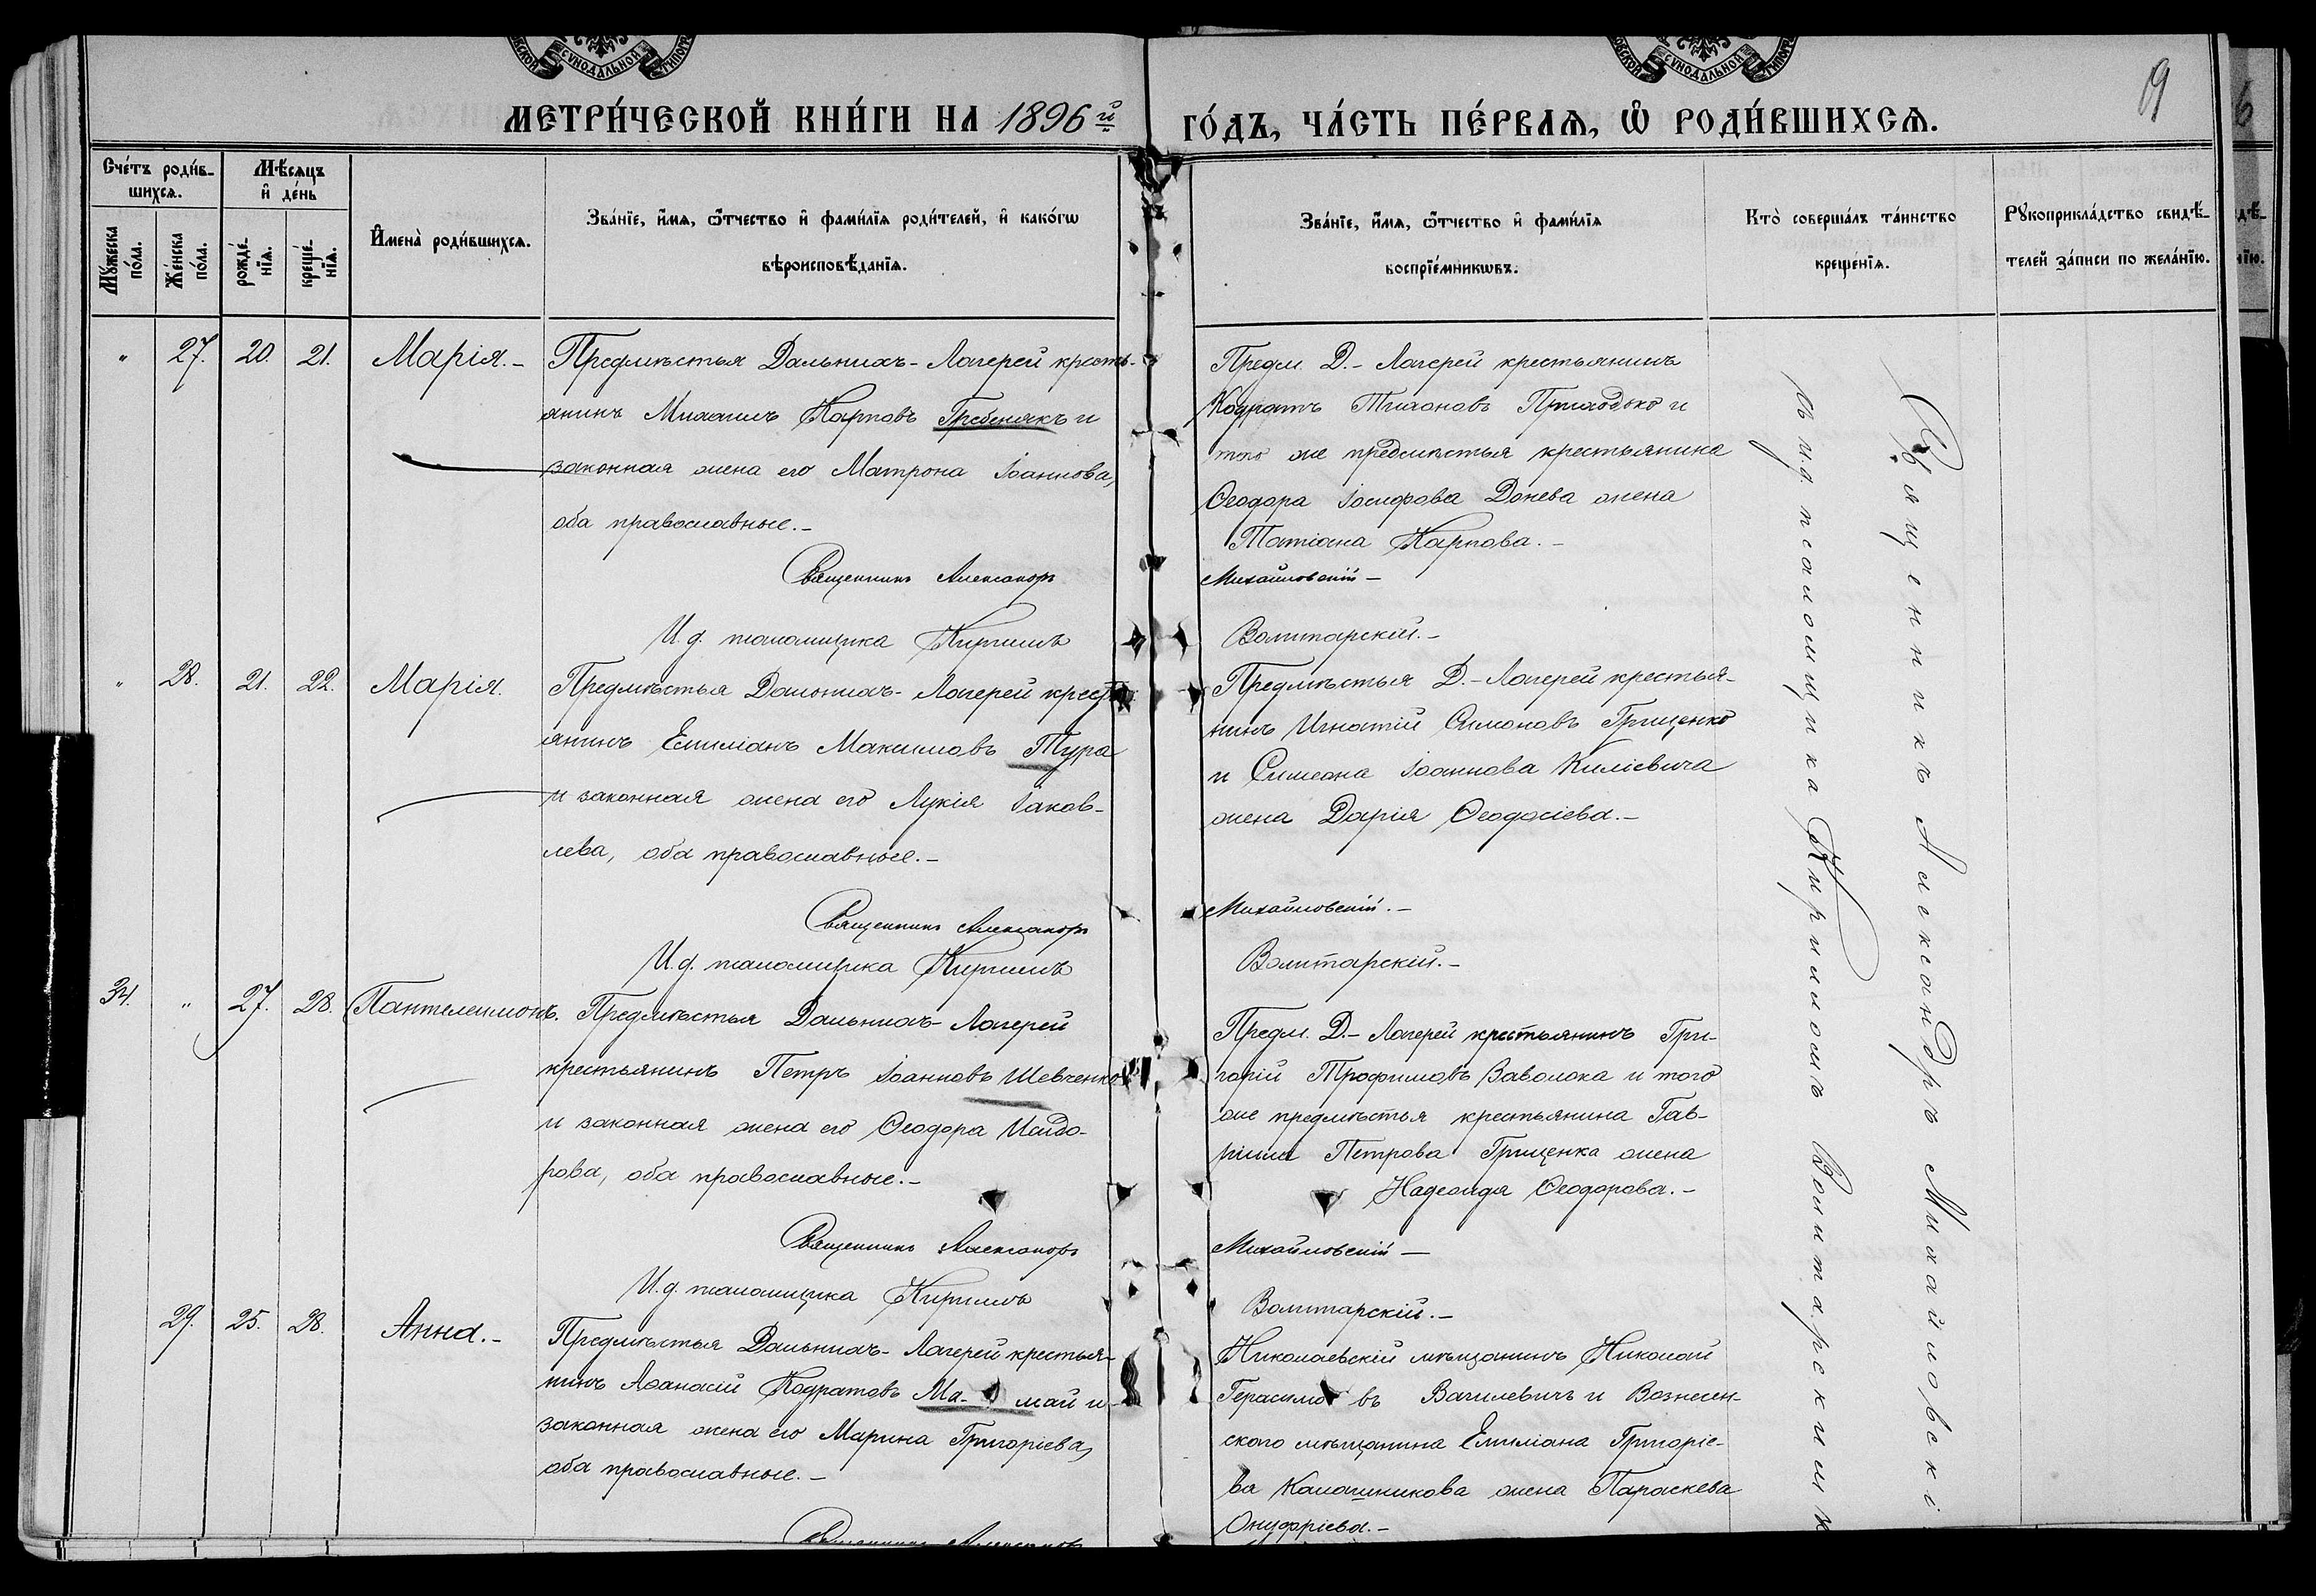 МЕТРИ́ЧЕСКОЙ КНИ́ГИ НА 1896й ГО́ДЪ, ЧА́СТЬ ПЕ́РВАѦ, Ѡ҆ РОДИ́ВШИХСѦ.
9
Сче́тъ роди́в-
шихсѧ.
Мꙋ́жеска
по́ла.
Же́нска
по́ла.
Мѣ́сѧцъ
и҆ де́нь
рожде́-
нїѧ.
креще́-
нїѧ.
И҆мена̀ роди́вшихсѧ.
Зва́нїе, и҆́мѧ, ѻ҆́тчество и҆ фами́лїѧ роди́телей, и҆ како́гѡ
вѣроисповѣ́данїѧ.
Зва́нїе, и҆́мѧ, ѻ҆́тчество и҆ фами́лїѧ
воспрїе́мникѡвъ.
Кто̀ соверша́лъ та́инство
креще́нїѧ.
Рꙋкоприкла́дство свидѣ́-
телей за́писи по жела́нїю.
" 27. 20. 21. Марія.-
Предмѣстья Дальнихъ-Лагерей кресть-
янинъ Михаилъ Карповъ Гребенякъ и
законная жена его Матрона Іоаннова,
оба православные.-
Предм. Д.- Лагерей крестьянинъ
Кодратъ Тихоновъ Приходько и
того же предмѣстья крестьянина
Ѳеодора Іосифова Донева жена
Татіана Карпова.-
Священникъ Александръ Михайловскій-
И.д. псаломщика Кириллъ Волитарскій.-
" 28. 21. 22. Марія.
Предмѣстья Дальнихъ-Лагерей кресть-
янинъ Емиліанъ Максимовъ Тура
и законная жена его Лукія Іаков-
лева, оба православные.-
Предмѣстья Д.-Лагерей крестья-
нинъ Игнатій Симоновъ Грищенко
и Симеона Іоаннова Киліевича
жена Дарія Ѳеодосіева.-
Священникъ Александръ Михайловскій.-
И.д. псаломщика Кириллъ Волитарскій.-
34. " 27. 28. Пантелеимонъ.
Предмѣстья Дальнихъ-Лагерей
крестьянинъ Петръ Іоанновъ Шевченко
и законная жена его Ѳеодора Исидо-
рова, оба православные.-
Предм. Д.- Лагерей крестьянинъ Гри-
горій Трофимовъ Заволока и того
же предмѣстья крестьянина Гав-
ріила Петрова Грищенка жена
Надежда Ѳеодорова.-
Священникъ Александръ Михайловскій-
И.д. псаломщика Кириллъ Волитарскій.-
29. 25. 28. Анна.-
Предмѣстья Дальнихъ-Лагерей крестья-
нинъ Аѳанасій Кодратовъ Ма- май и
законная жена его Марина Григоріева,
оба православные.-
Николаевскій мѣщанинъ Николай
Герасимовъ Вагилевичъ и Вознесен-
скаго мѣщанина Емиліана Григоріе-
ва Калашникова жена Параскева
Онуфріева.-
Священникъ Александръ
Священникъ Александръ Михайловскі
съ и.д. псаломщика Кирилломъ Волитарскимъ